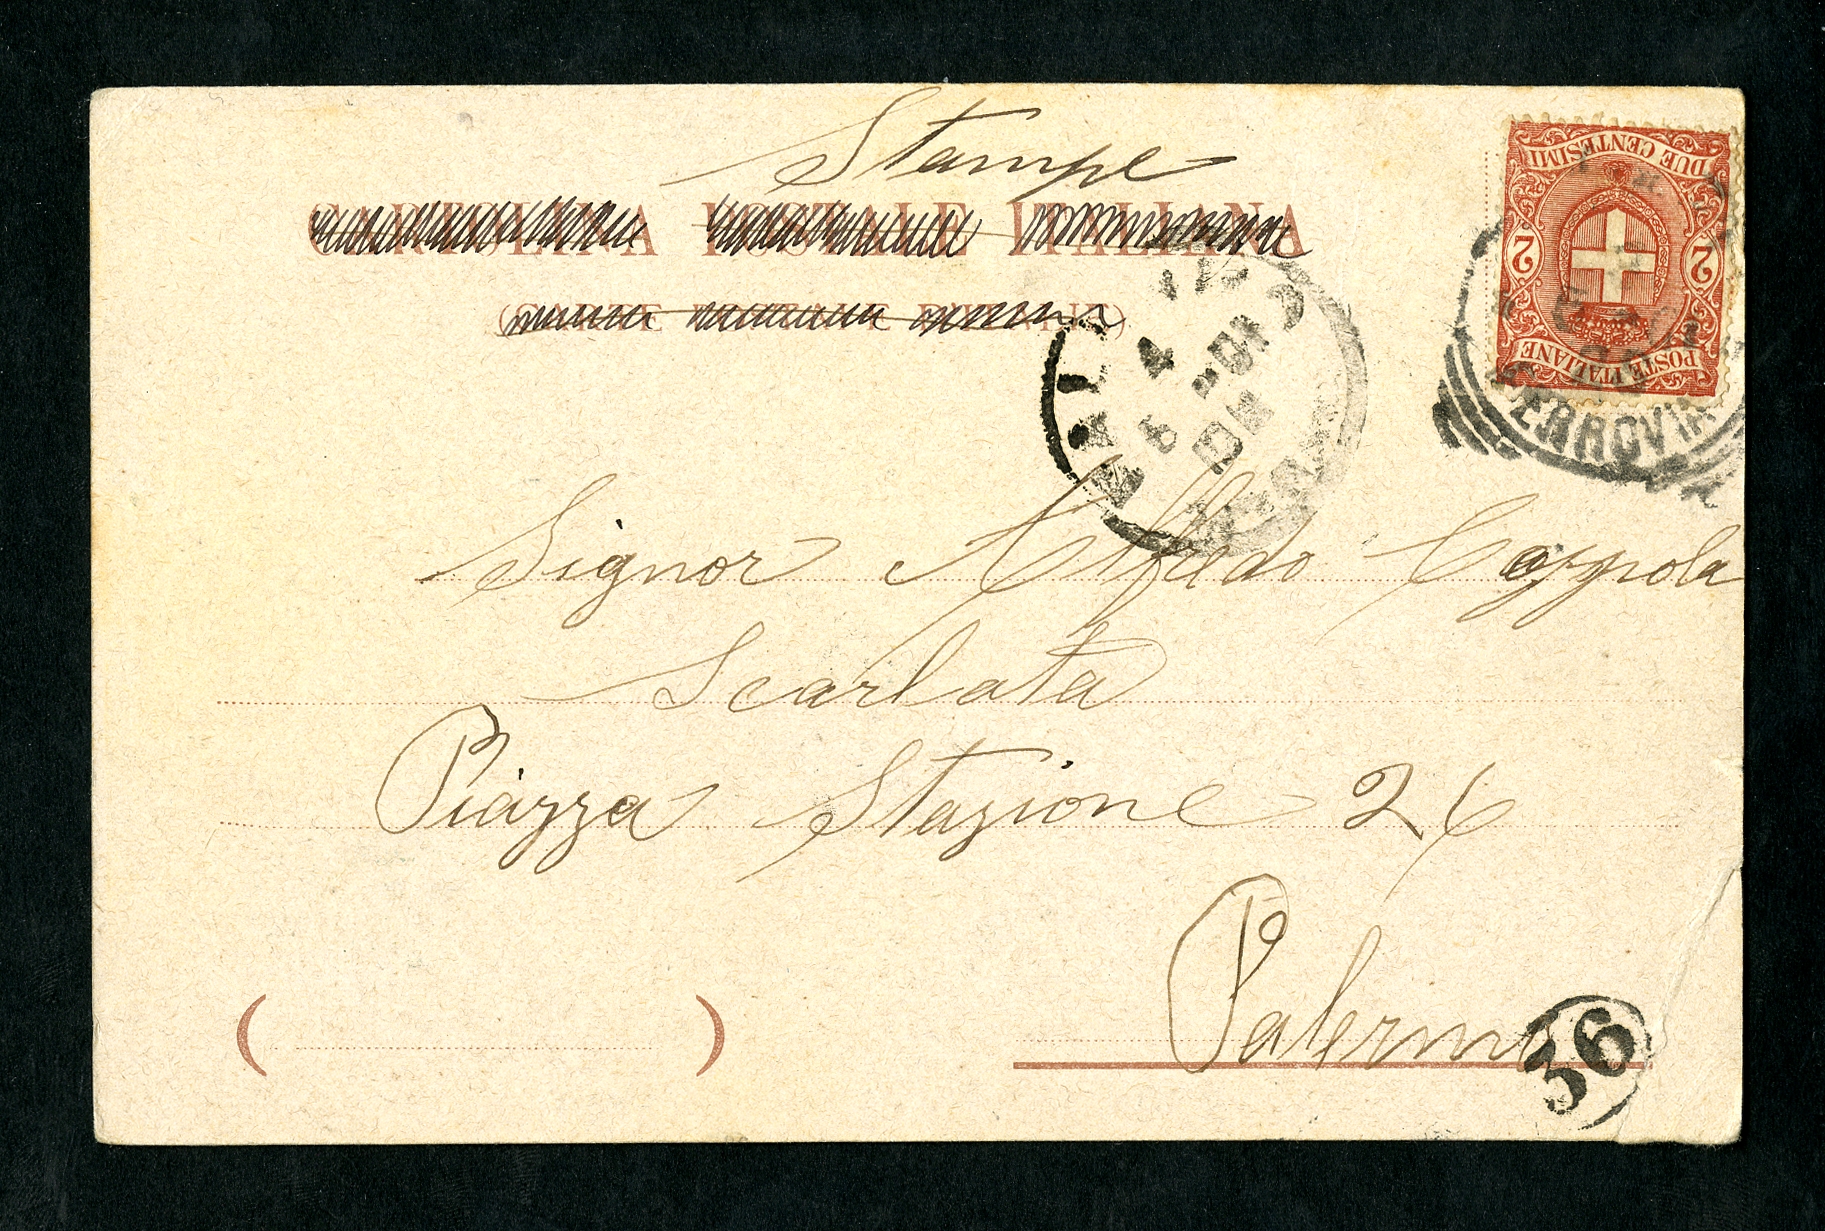 Stampe
CARTOLINA POSTALE ITALIANA
(CARTE POSTALE D'ITALIE)
DUE CENTESIMI
2 2
POSTE ITALIANE
FERROVIA
4
Signor Alfredo Coppola
Scarlata
Piazza Stazione 26
Palermo
36
( )